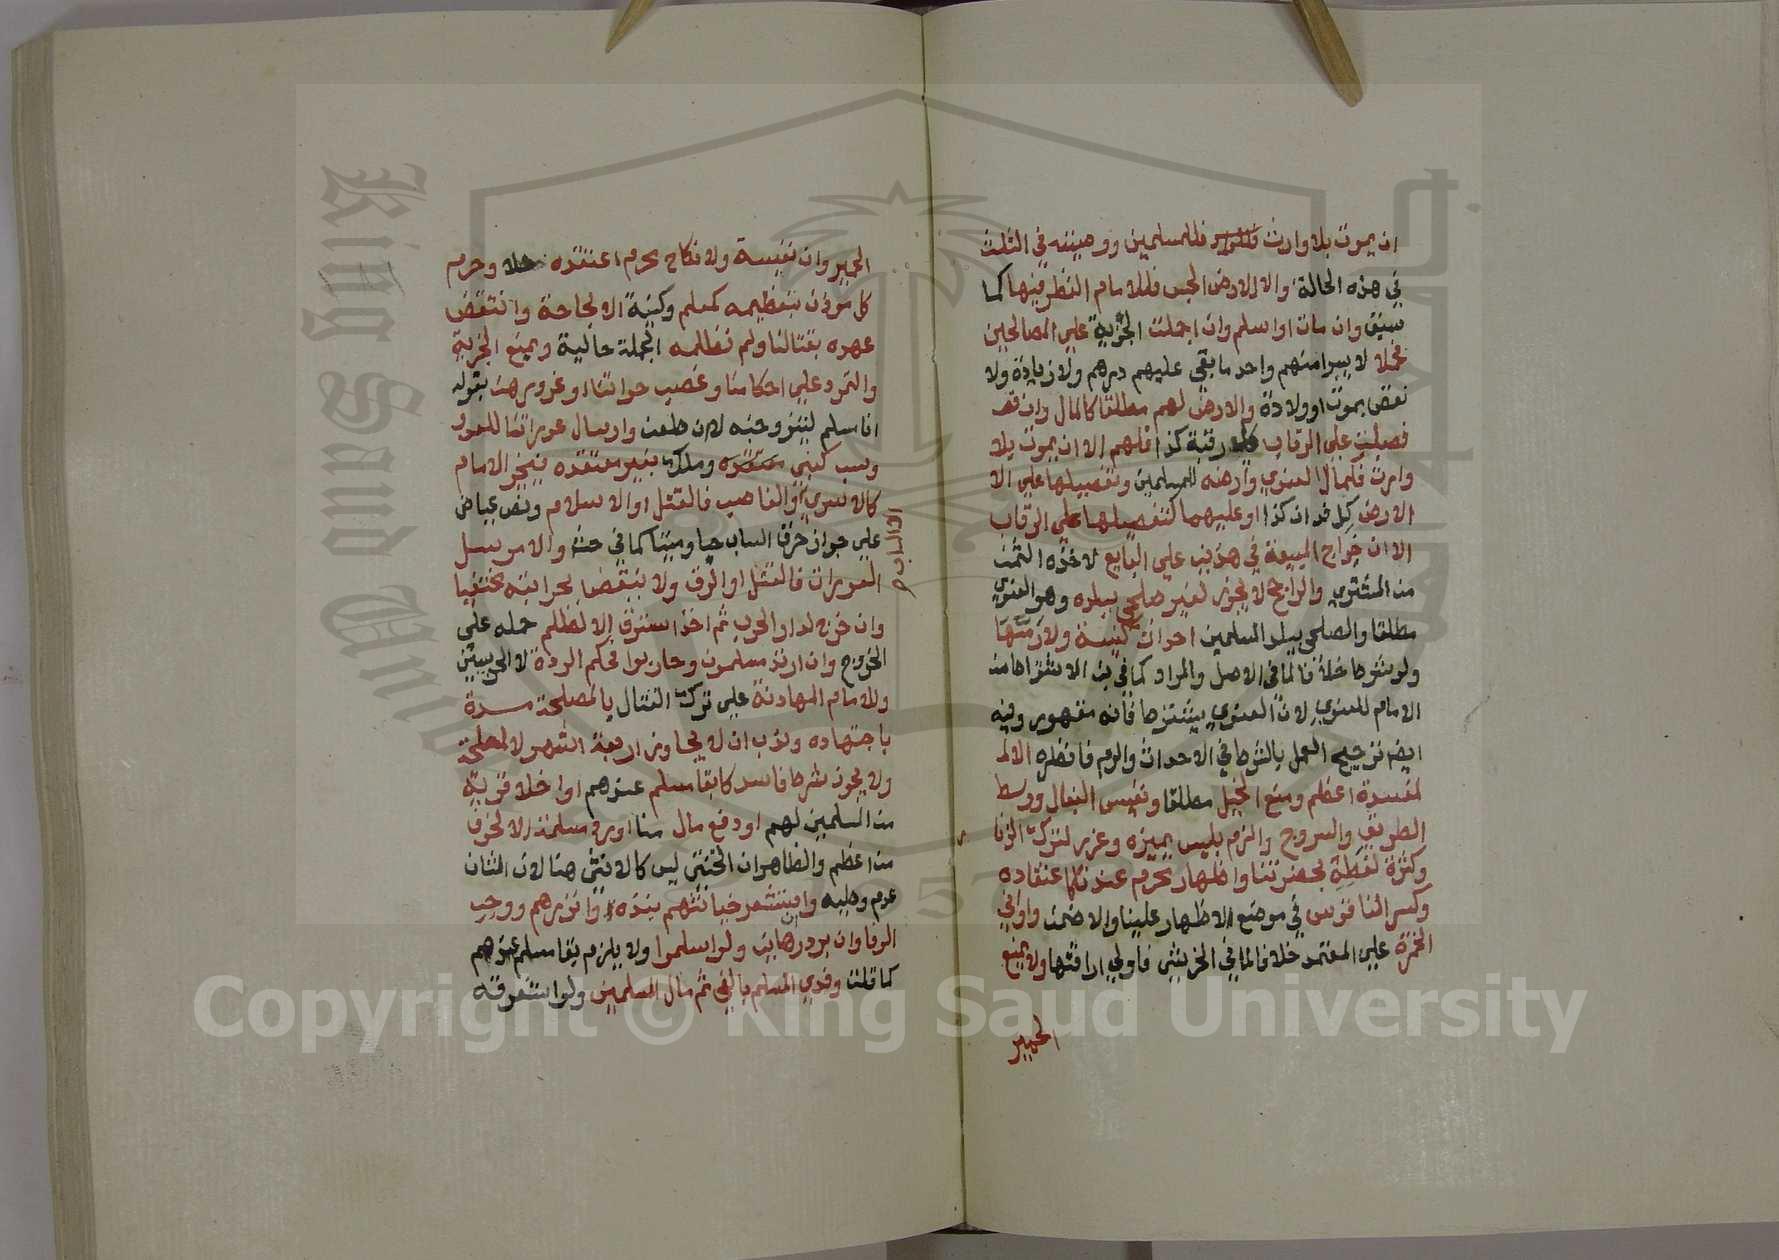 ان يموت بلا وارث فللمسلمين ووصيته في الثلث
في هذه الحالة والا الارض الحبس فللامام النظر فيها كما
سبق وان مات او اسلم وان اجملت الجزية علي المصالحين
فحملا لا يبرا منهم واحد ما بقي عليهم درهم ولا زيادة ولا
نقص بموت او ولادة والارض لهم مطلقا كالمال وان
فصلت علي الرقاب كل رقبة كذا فلهم الا ان يموت بلا
وارث فلمال العنوي وارضه للمسلمين وتفصيلها علي
الارض كل فدان كذا او عليهما كتفصيلها علي الرقاب
الا ان خراج المبيعة في هذين علي البايع لاخذه الثمن
من المشتري والراجح لا يجوز لغير صلحي ببلده وهو العنوي
مطلقا والصلحي ببلد المسلمين احداث كنيسة ولا رمتها
ولو بشرط خلافا لما في الاصل والمراد كما في بن الاشتراط من
الامام للعنوي لان العنوي يشترط فانه مقهور وفيه
ايضا ترجيح العمل بالشرط في الاحداث والرم فانظره الا
لمفسدة اعظم ومنع الخيل مطلقا ونفيس البغال ووسط
الطريق والسروج والزم بلبس يميزه وعزر لترك الزنا
وكثرة لغطه بحضرتنا واظهار محرم عندنا كاعتقاده
وكسر الناقوس في موضع الاظهار علينا والا ضمن واواني
الخمرة علي المعتمد خلافا لما في الخرشي فاولي اراقتها ولا يمنع
الحمير
الحمير وان نفيسة ولا نكاح محرم اعتقده حلا وحرم
كل موذن بتعظيمه كمسلم وكنية الا لحاجة وانتقض
عهده بقتالنا ولم نظلمه الجملة حالية وبمنع الجزية
والتمرد علي احكامنا وغصب حراتنا وغرورهن بقوله
انا مسلم ليتزوجته لا ان علمت وارسال عوراتنا للعدو
وسب كنبي وملك بغير معتقده فيخير الامام
كالاسري والغاصب فالقتل او الاسلام ونص عياض
او السابم
علي جواز حرق الساب حيا وميتا كما في حش والا مرسل
العورات فالقتل او الرق ولا ينتقض بحرابته مختفيا
وان خرج لدار الحرب ثم اخذ استرق الا لظلم حمله علي
الخروج وان ارتد مسلمون وحاربوا فحكم الردة لا الحربيين
وللامام المهادنة علي ترك القتال بالمصلحة مدة
باجتهاده وندب ان لا يجاوز اربعة اشهر الا لمصلحة
ولا يجوز شرط فاسد كابقا مسلم عندهم او اخلا قرية
من المسلمين لهم او دفع مال منا او رد مسلمة الا لخوف
من اعظم والظاهر ان الخنثي ليس كالانثي هنا لان المثان
عدم وطيه وان استشعر خيانتهم نبذه وانذرهم ووجب
الوفا وان برد رهاين ولو اسلموا ولا يلزم بقا مسلم عندهم
كما قلت وفدي المسلم بالفي ثم مال المسلمين ولو استغرقه
Copyright © King Saud University
King Saud University
1957